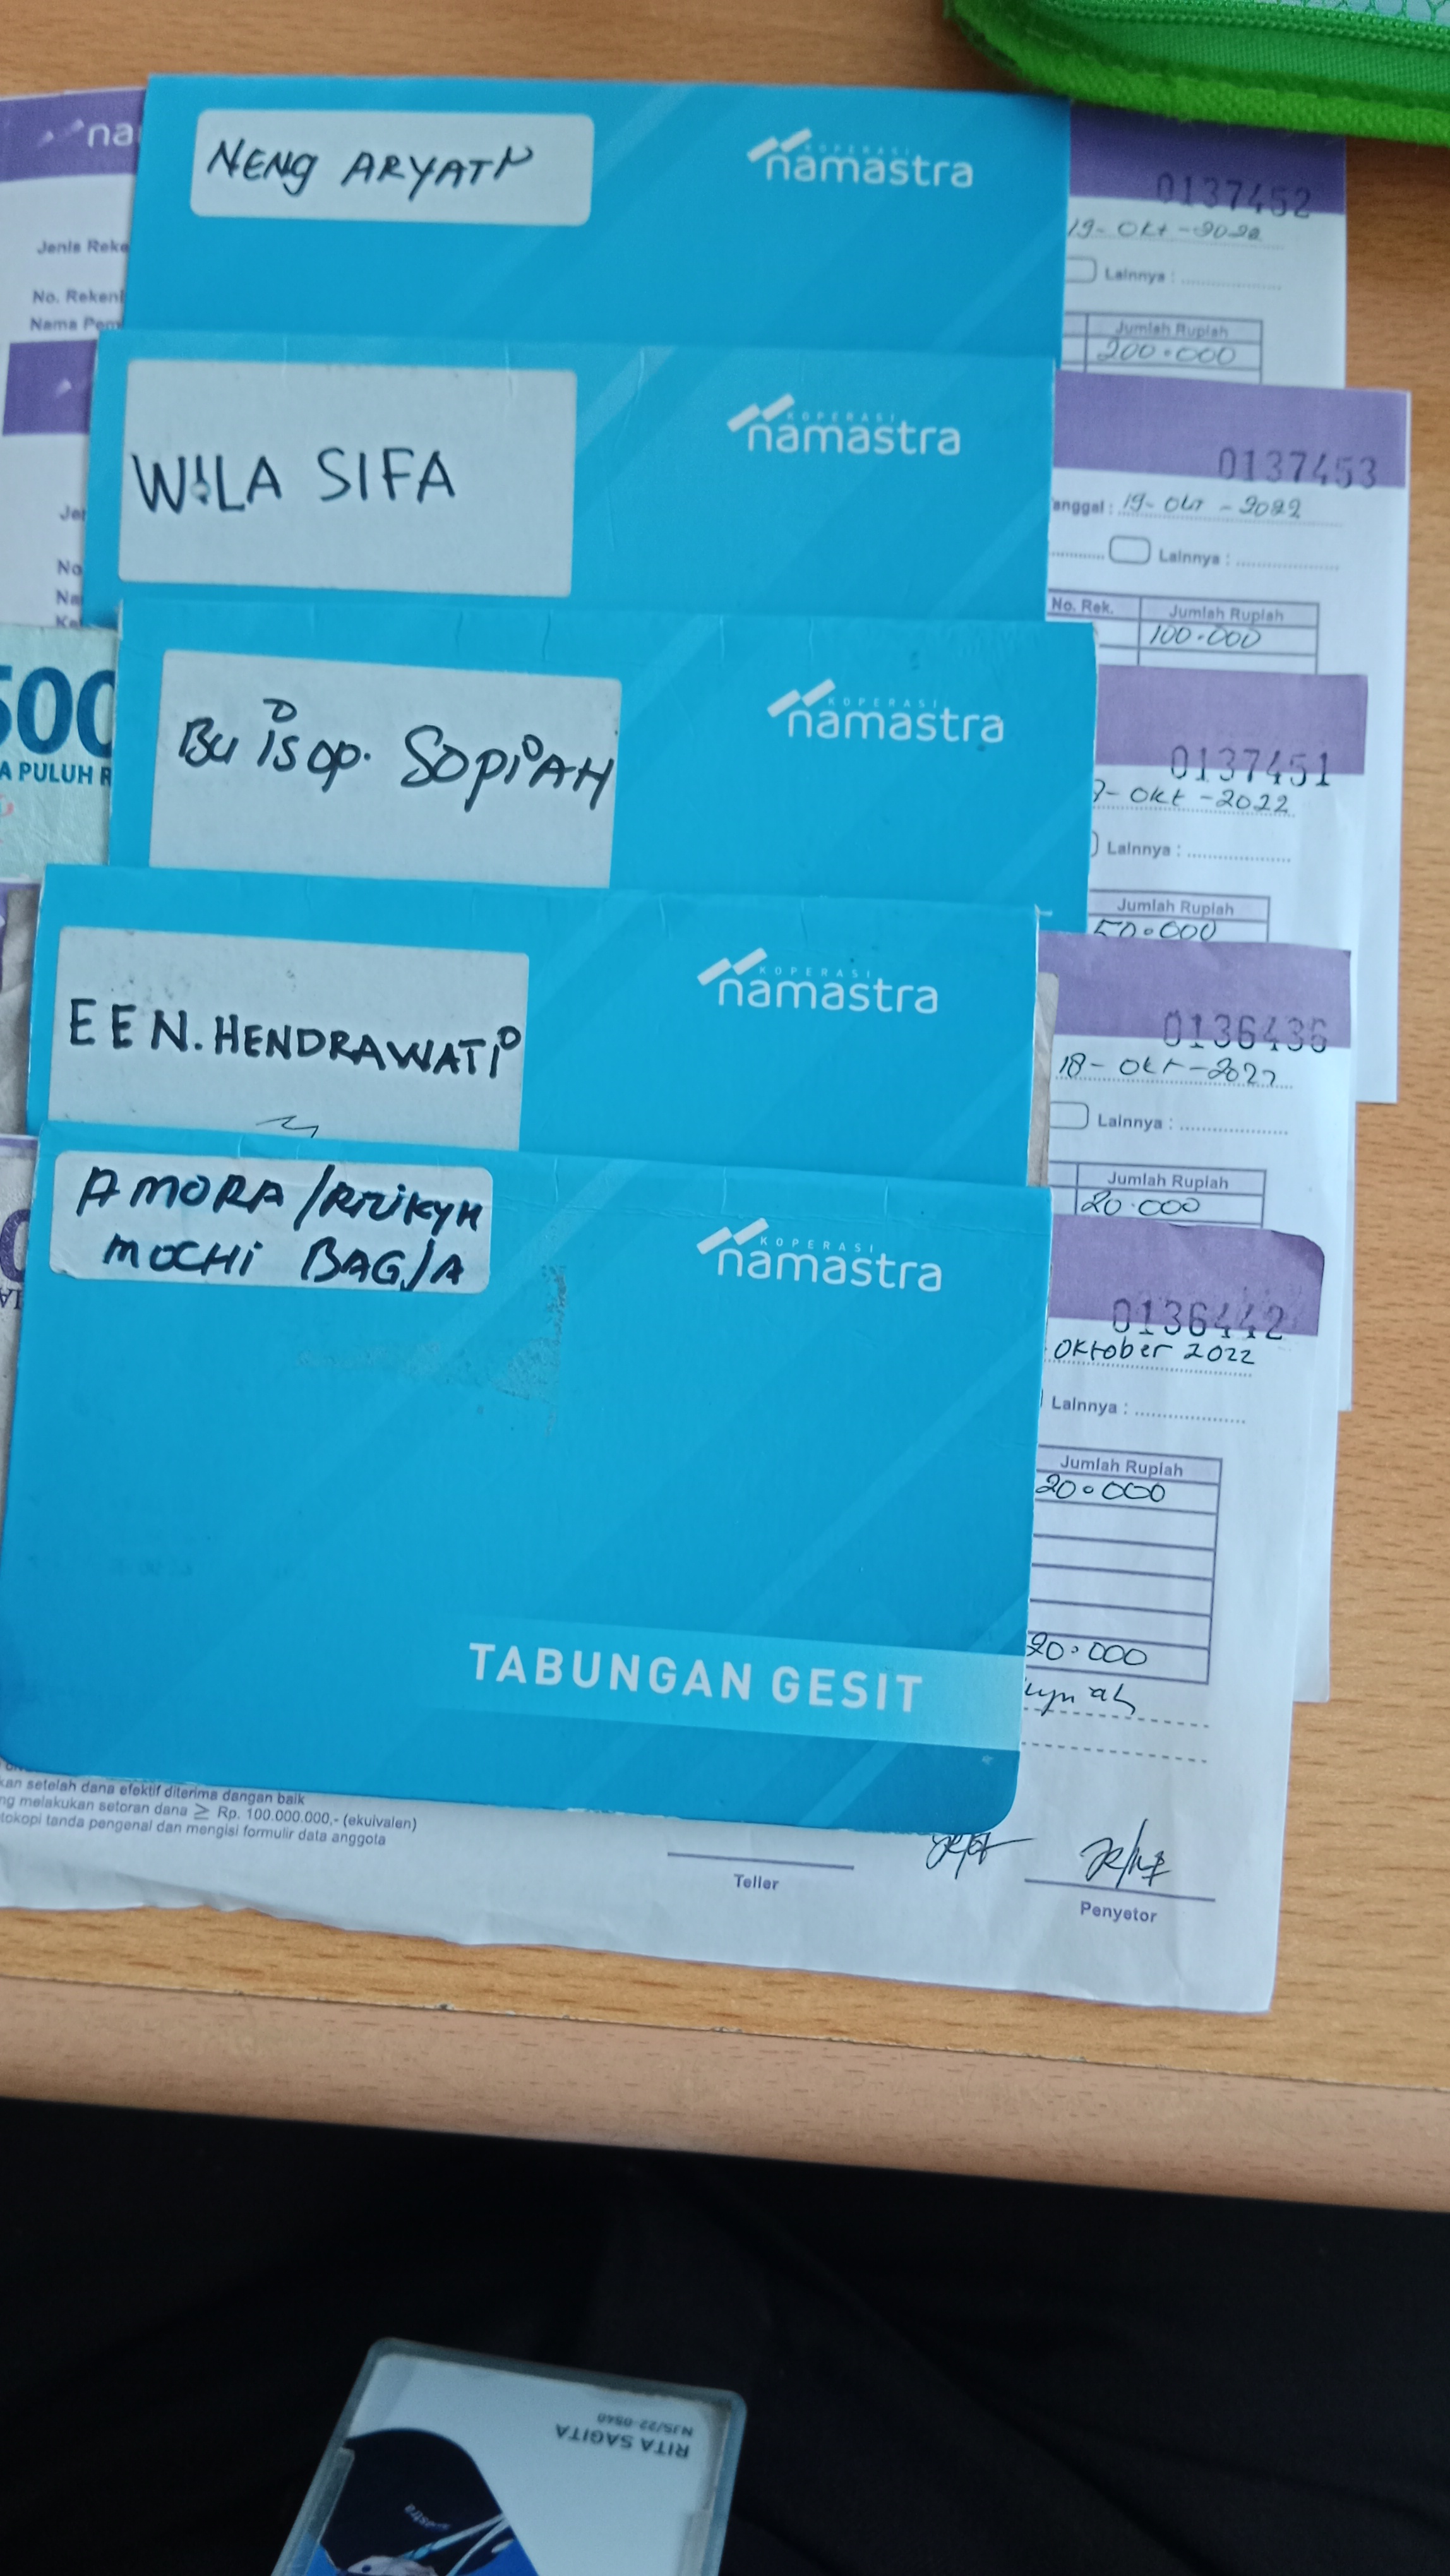 NENG ARYATI
KOPERASI
namastra
0137452
19-Okt-2022
Lainnya :
Jumlah Rupiah
200.000
na
Jenis Reke
No. Rekeni
Nama Pem
WILA SIFA
KOPERASI
namastra
0137453
anggal : 19-Okt-2022
Lainnya :
No. Rek. Jumlah Rupiah
100.000
Jen
No
Na
Ke
500
A PULUH R
Bu is op. SOPiAH
KOPERASI
namastra
0137451
-Okt-2022
Lainnya :
Jumlah Rupiah
50.000
EEN.HENDRAWATi
KOPERASI
namastra
0136436
18-Okt-2022
Lainnya :
Jumlah Rupiah
20.000
AMORA /
MOCHi BAGJA
KOPERASI
namastra
0136442
Oktober 2022
Lainnya :
Jumlah Rupiah
20.000
20.000
TABUNGAN GESIT
kan setelah dana efektif diterima dangan baik
ng melakukan setoran dana ≥ Rp. 100.000.000,- (ekuivalen)
tokopi tanda pengenal dan mengisi formulir data anggota
Teller
Penyetor
RITA SAGITA
NJS/22-0540